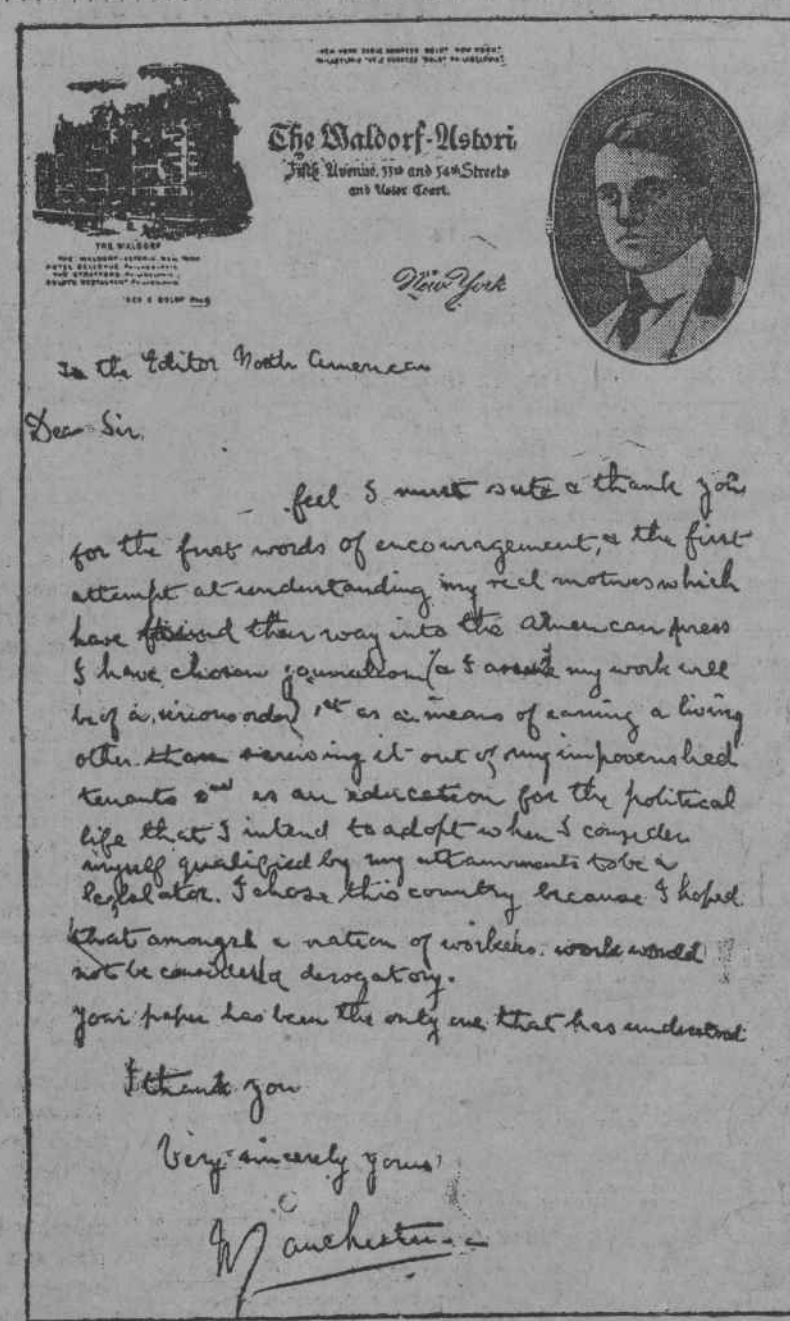 The Waldorf-Astori
Fifth Avenue, 33rd and 34th Streets
and Astor Court.
THE WALDORF
THE WALDORF-ASTORIA NEW YORK
New York
To the Editor North American
Dear Sir,
feel I must write & thank you
for the first words of encouragement, & the first
attempt at understanding my real motives which
have found their way into the American press
I have chosen journalism (& I my work will
be of a serious order) 1st as a means of earning a living
other than it out of my impoverished
tenants 2nd as an education for the political
life that I intend to adopt when I consider
myself qualified by my attainments to be a
legislator. I chose this country because I hoped
that amongst a nation of workers work would
not be considered derogatory.
Your paper has been the only one that has understood
I thank you
Very sincerely yours
Manchester